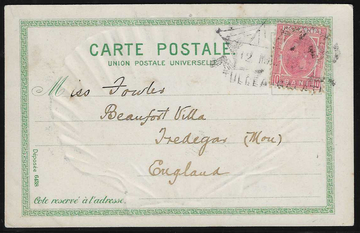 CARTE POSTALE.
UNION POSTALE UNIVERSELLE.
Miss Fowler
Beaufort Villa
Tredegar (Mon)
England
Déposée
Cote reservé à l'adresse.